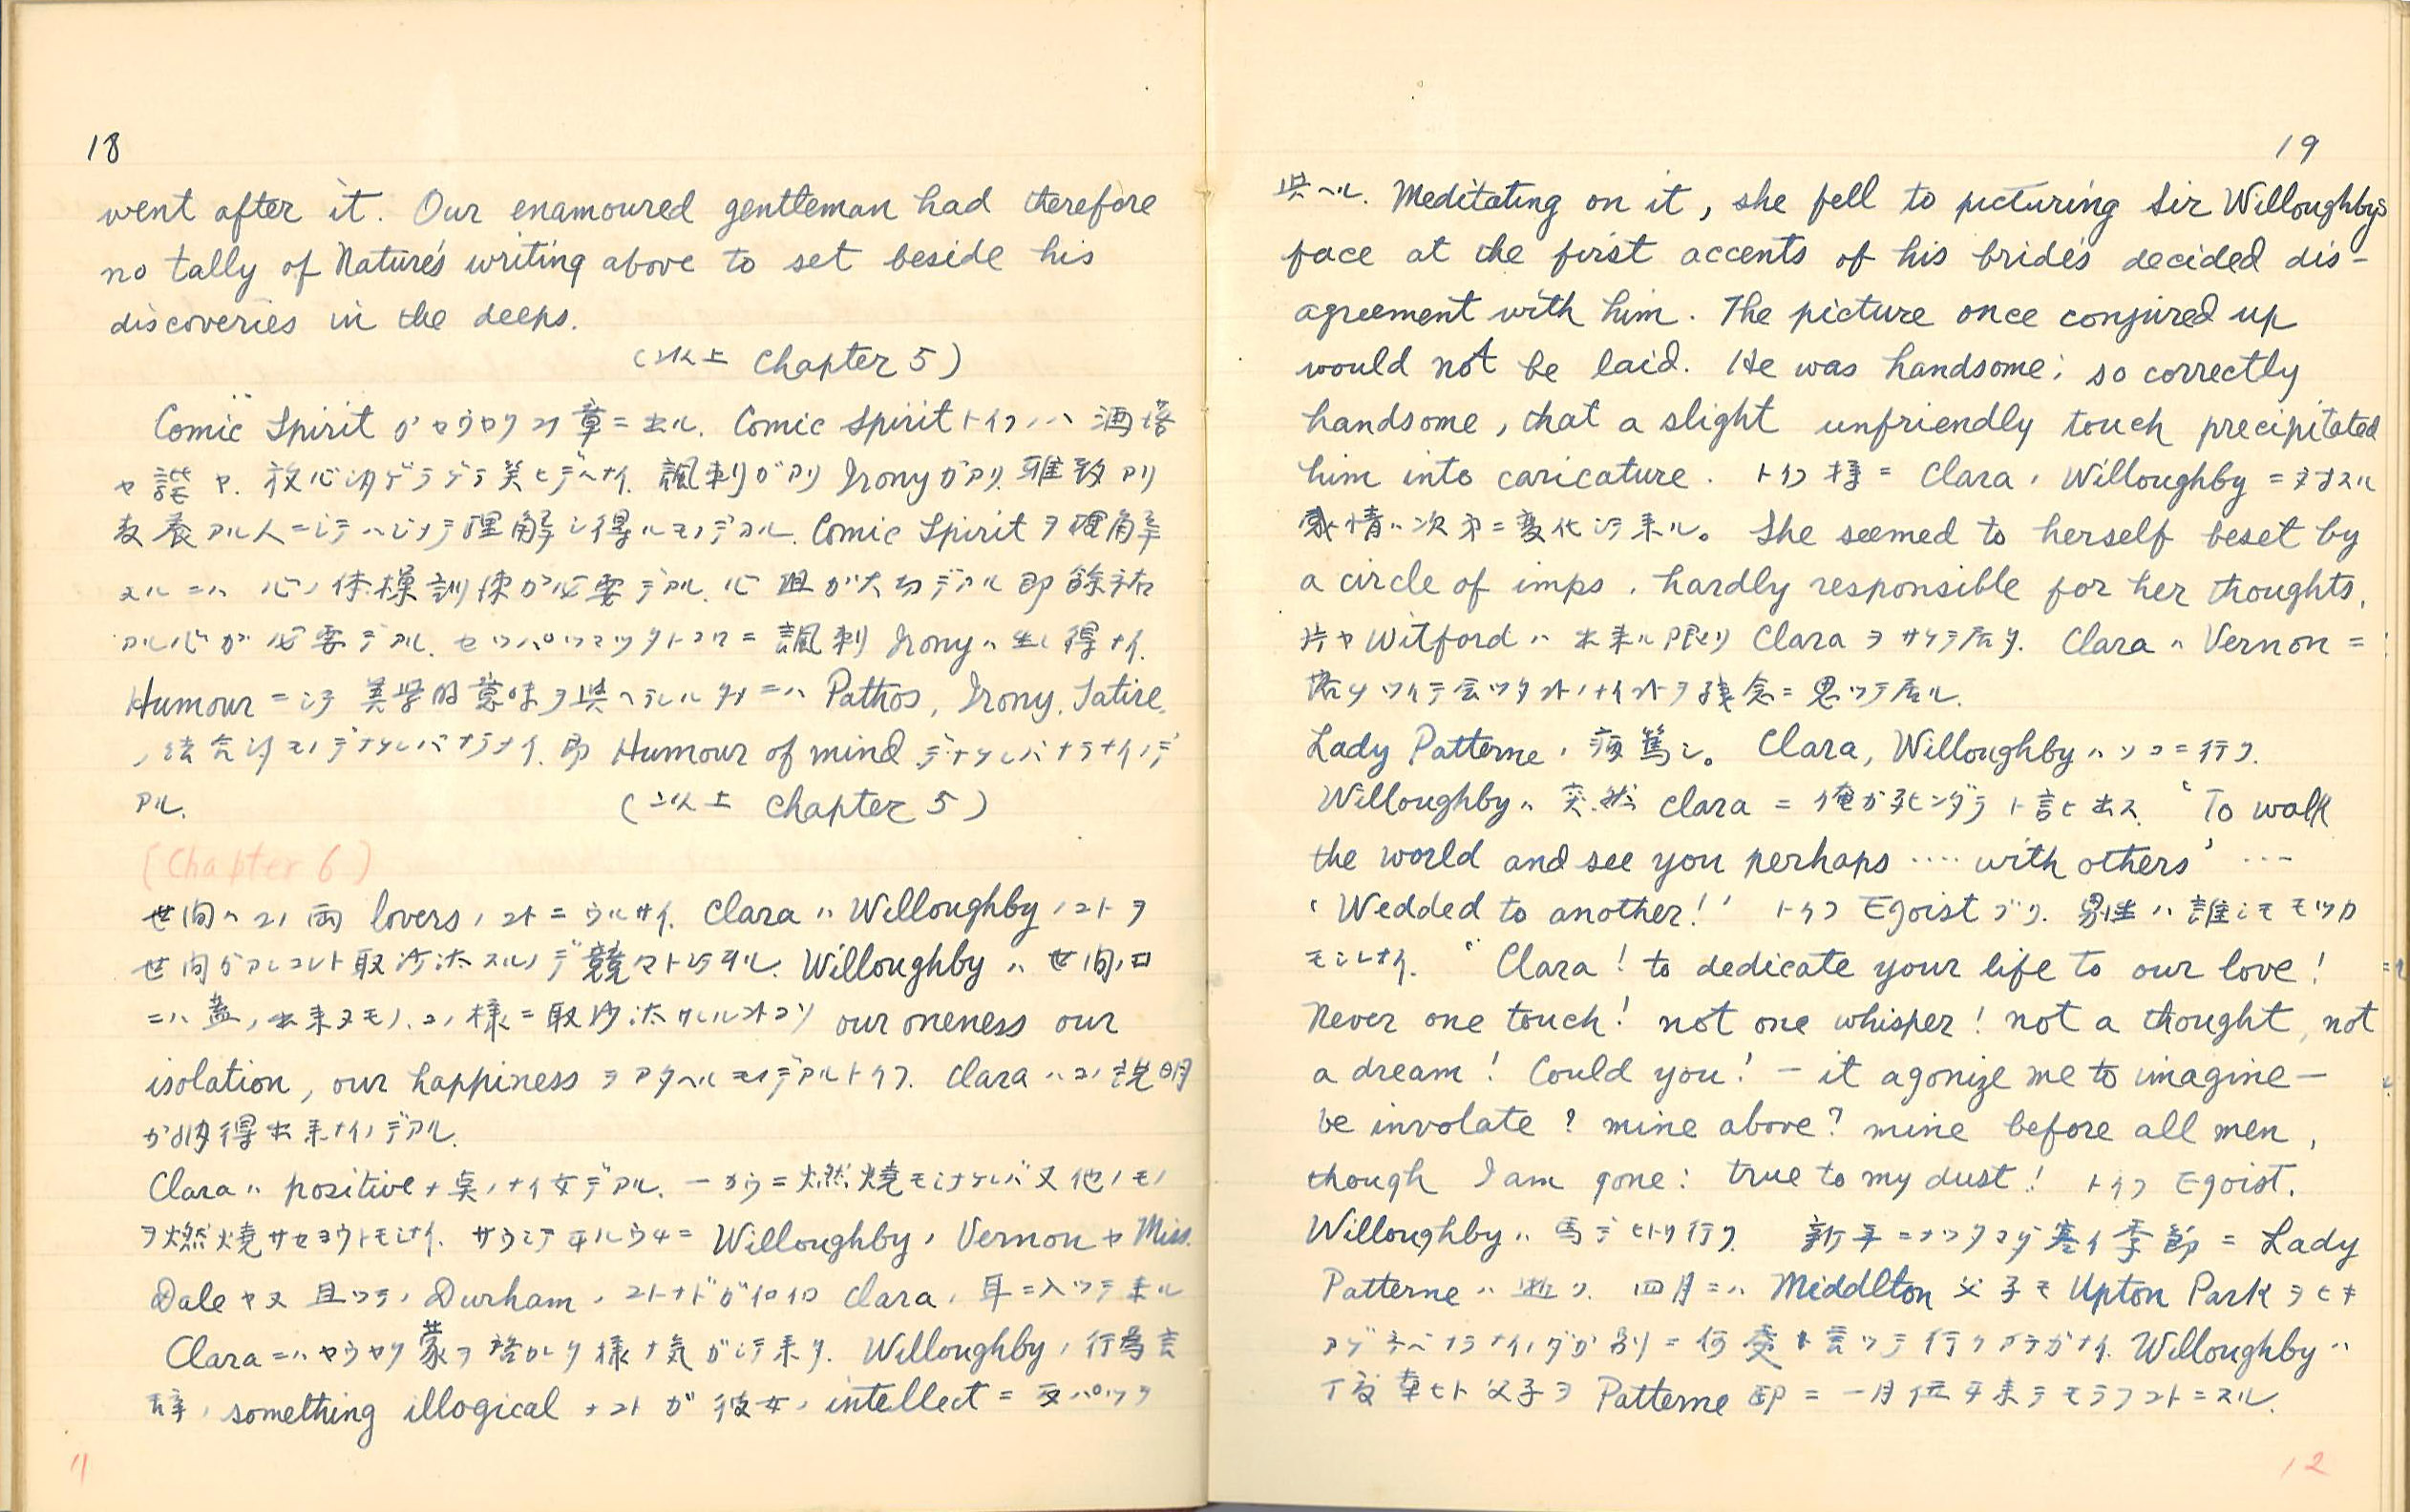 18
went after it. Our enamoured gentleman had therefore
no tally of Nature's writing above to set beside his
discoveries in the deeps.
(以上 Chapter 5)
Comic Spirit ガヤウヤクコノ章ニ出ル. Comic Spirit トイフノハ 洒落
ヤ 謔 ヤ. 放心的ゲラゲラ笑ヒデハナイ. 諷刺ガアリ Irony ガアリ. 雅致アリ
教養アル人ニシテハジメテ理解シ得ルモノデアル. Comic Spirit ヲ理解
スルニハ 心ノ体操訓練ガ必要デアル. 心 ガ大切デアル 即 餘裕
アル心ガ必要デアル. セツパツマツタトコロニ 諷刺 Irony ハ生レ得ナイ.
Humour ニシテ 美学的意味ヲ與ヘラレルタメニハ Pathos, Irony, Satire,
ノ結合シタモノデナケレバナラナイ. 即 Humour of mind デナケレバナラナイノデ
アル. (以上 Chapter 5)
(Chapter 6)
世間ハコノ両 lovers ノコトニウルサイ. Clara ハ Willoughby ノコトヲ
世間ガアレコレト取沙汰スルノデ トシテヰル. Willoughby ハ 世間ノ口
ニハ蓋ノ出来ヌモノ. コノ様ニ取沙汰サレルコトコソ our oneness our
isolation, our happiness ヲアタヘルモノデアルトイフ. Clara ハコノ説明
ガ納得出来ナイノデアル.
Clara ハ positive ナ点ノナイ女デアル. 一カウニ燃焼モシナケレバ又他ノモノ
ヲ燃焼サセヨウトモシナイ. サウシテヰルウチニ Willoughby ノ Vernon ヤ Miss.
Dale ヤ又 且ツテノ Durham ノコトナドガイロイロ Clara ノ耳ニ入ツテ来ル
Clara ニハヤウヤク蒙ヲ啓カレタ様ナ気ガシテ来タ. Willoughby ノ行為言
辞ノ something illogical ナコトガ 彼女ノ intellect ニ反パツヲ
11
19
與ヘル. Meditating on it, she fell to picturing Sir Willoughby's
face at the first accents of his bride's decided dis-
agreement with him. The picture once conjured up
would not be laid. He was handsome; so correctly
handsome, that a slight unfriendly touch precipitated
him into caricature. トイフ様ニ Clara ノ Willoughby ニ対スル
感情ハ次第ニ変化シテ来ル。 She seemed to herself beset by
a circle of imps, hardly responsible for her thoughts.
片ヤ Witford ハ 出来ル限リ Clara ヲサケテ居タ. Clara ハ Vernon ニ
落チツイテ会ツタコトノナイコトヲ残念ニ思ツテ居ル.
Lady Patterne ノ病篤シ。 Clara, Willoughby ハソコニ行ク.
Willoughby ハ 突然 Clara ニ 俺ガ死ンダラト言ヒ出ス. 'To walk
the world and see you perhaps .... with others' ...
'Wedded to another!' トイフ Egoist ブリ. 男性ハ誰シモモツカ
モシレナイ. "Clara! to dedicate your life to our love!
Never one touch! not one whisper! not a thought, not
a dream! Could you! — it agonize me to imagine —
be involate? mine above? mine before all men,
though I am gone: true to my dust! トイフ Egoist.
Willoughby ハ 馬デヒトリ行ク. 新年ニナツタマダ寒イ季節ニ Lady
Patterne ハ 逝ク. 四月ニハ Middlton 父子モ Upton Park ヲヒキ
アゲネバナラナイノダガ別ニ何処ト言ツテ行クアテガナイ. Willoughby ハ
丁度幸ヒト父子ヲ Patterne 邸ニ一月位 来テモラフコトニスル.
12